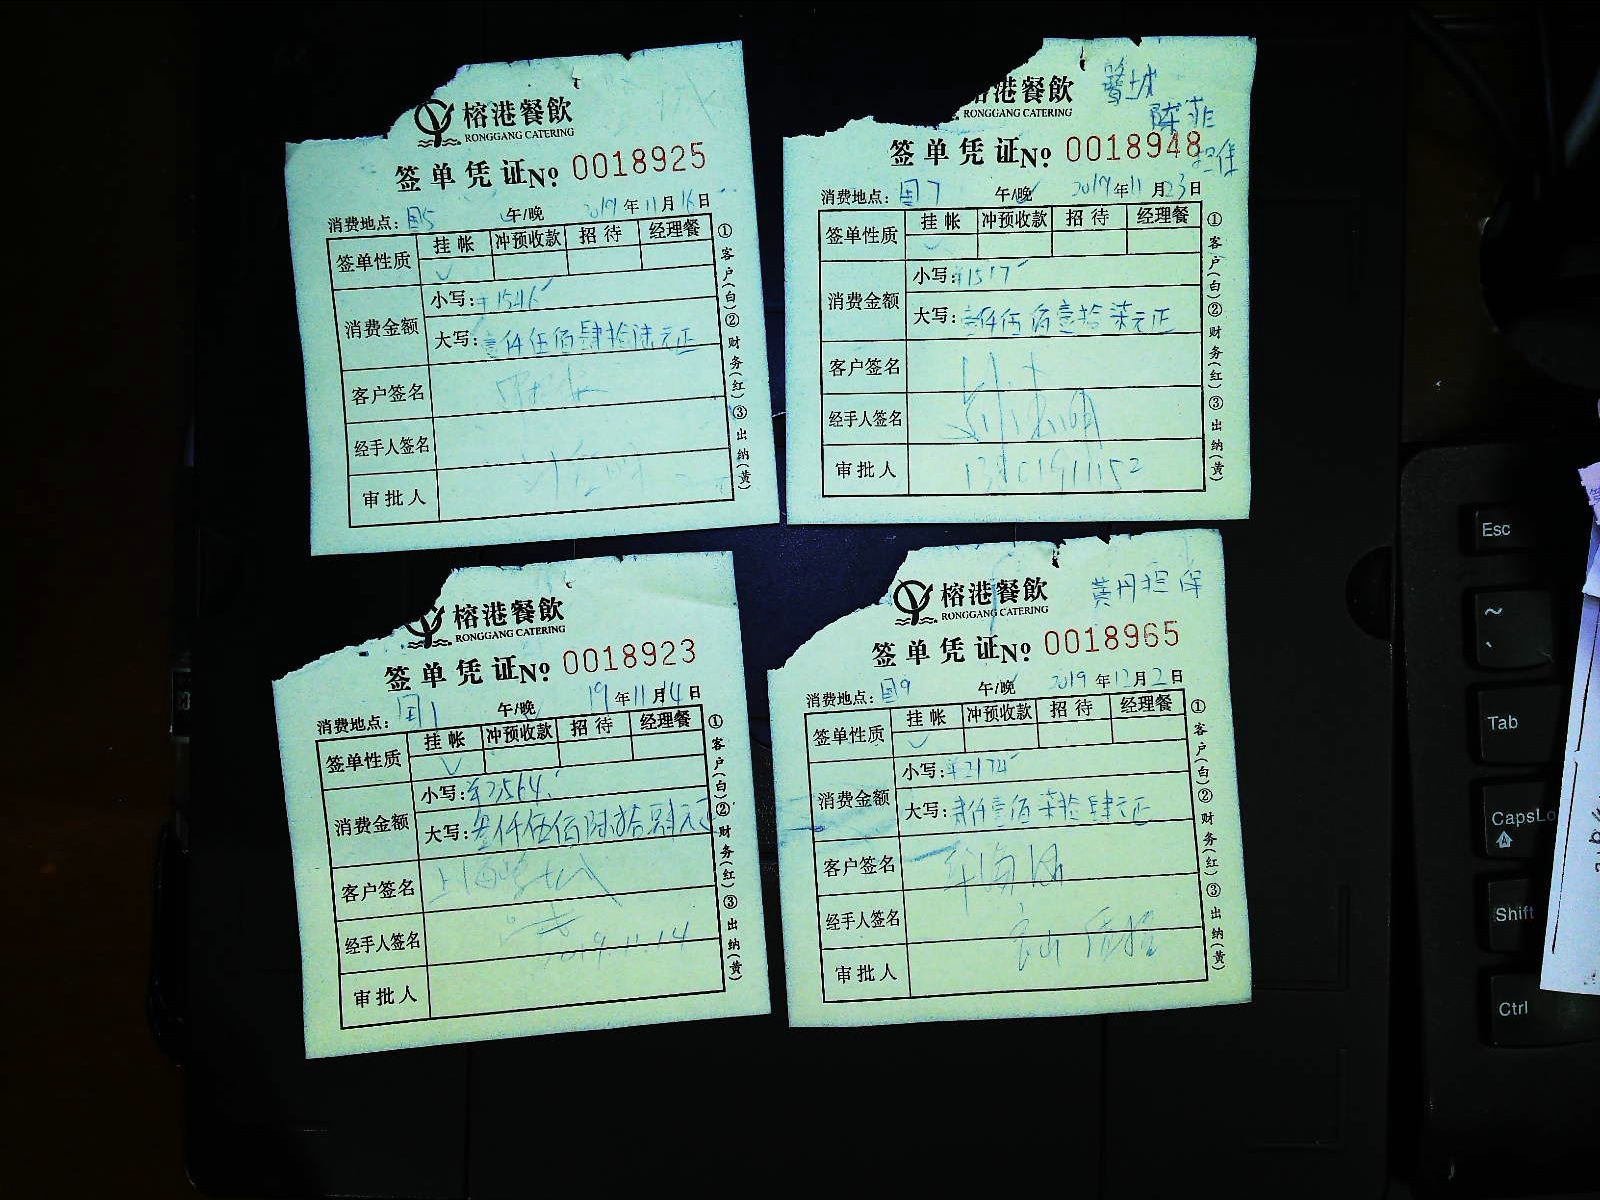 榕港餐飲
RONGGANG CATERING
签单凭证 No. 0018925
消费地点: 国5 午/晚 2019年11月16日
签单性质 挂帐 冲预收款 招待 经理餐
消费金额
小写: ¥1546
大写: 壹仟伍佰肆拾陆元正
客户签名
经手人签名
审批人
①客户(白)②财务(红)③出纳(黄)
港餐飲
RONGGANG CATERING
陈菲
担保
签单凭证 No. 0018948
消费地点: 国7 午/晚 2019年11月23日
签单性质 挂帐 冲预收款 招待 经理餐
消费金额
小写: ¥1517
大写: 壹仟伍佰壹拾柒元正
客户签名
经手人签名
审批人
①客户(白)②财务(红)③出纳(黄)
榕港餐飲
RONGGANG CATERING
签单凭证 No. 0018923
消费地点: 国1 午/晚 19年11月14日
签单性质 挂帐 冲预收款 招待 经理餐
消费金额
小写: ¥3564
大写: 叁仟伍佰陆拾肆元正
客户签名
经手人签名 2019.11.14
审批人
①客户(白)②财务(红)③出纳(黄)
榕港餐飲
RONGGANG CATERING
黄丹担保
签单凭证 No. 0018965
消费地点: 国9 午/晚 2019年12月2日
签单性质 挂帐 冲预收款 招待 经理餐
消费金额
小写: ¥2174
大写: 贰仟壹佰柒拾肆元正
客户签名
经手人签名
审批人
①客户(白)②财务(红)③出纳(黄)
Esc
~
Tab
CapsLo
Shift
Ctrl